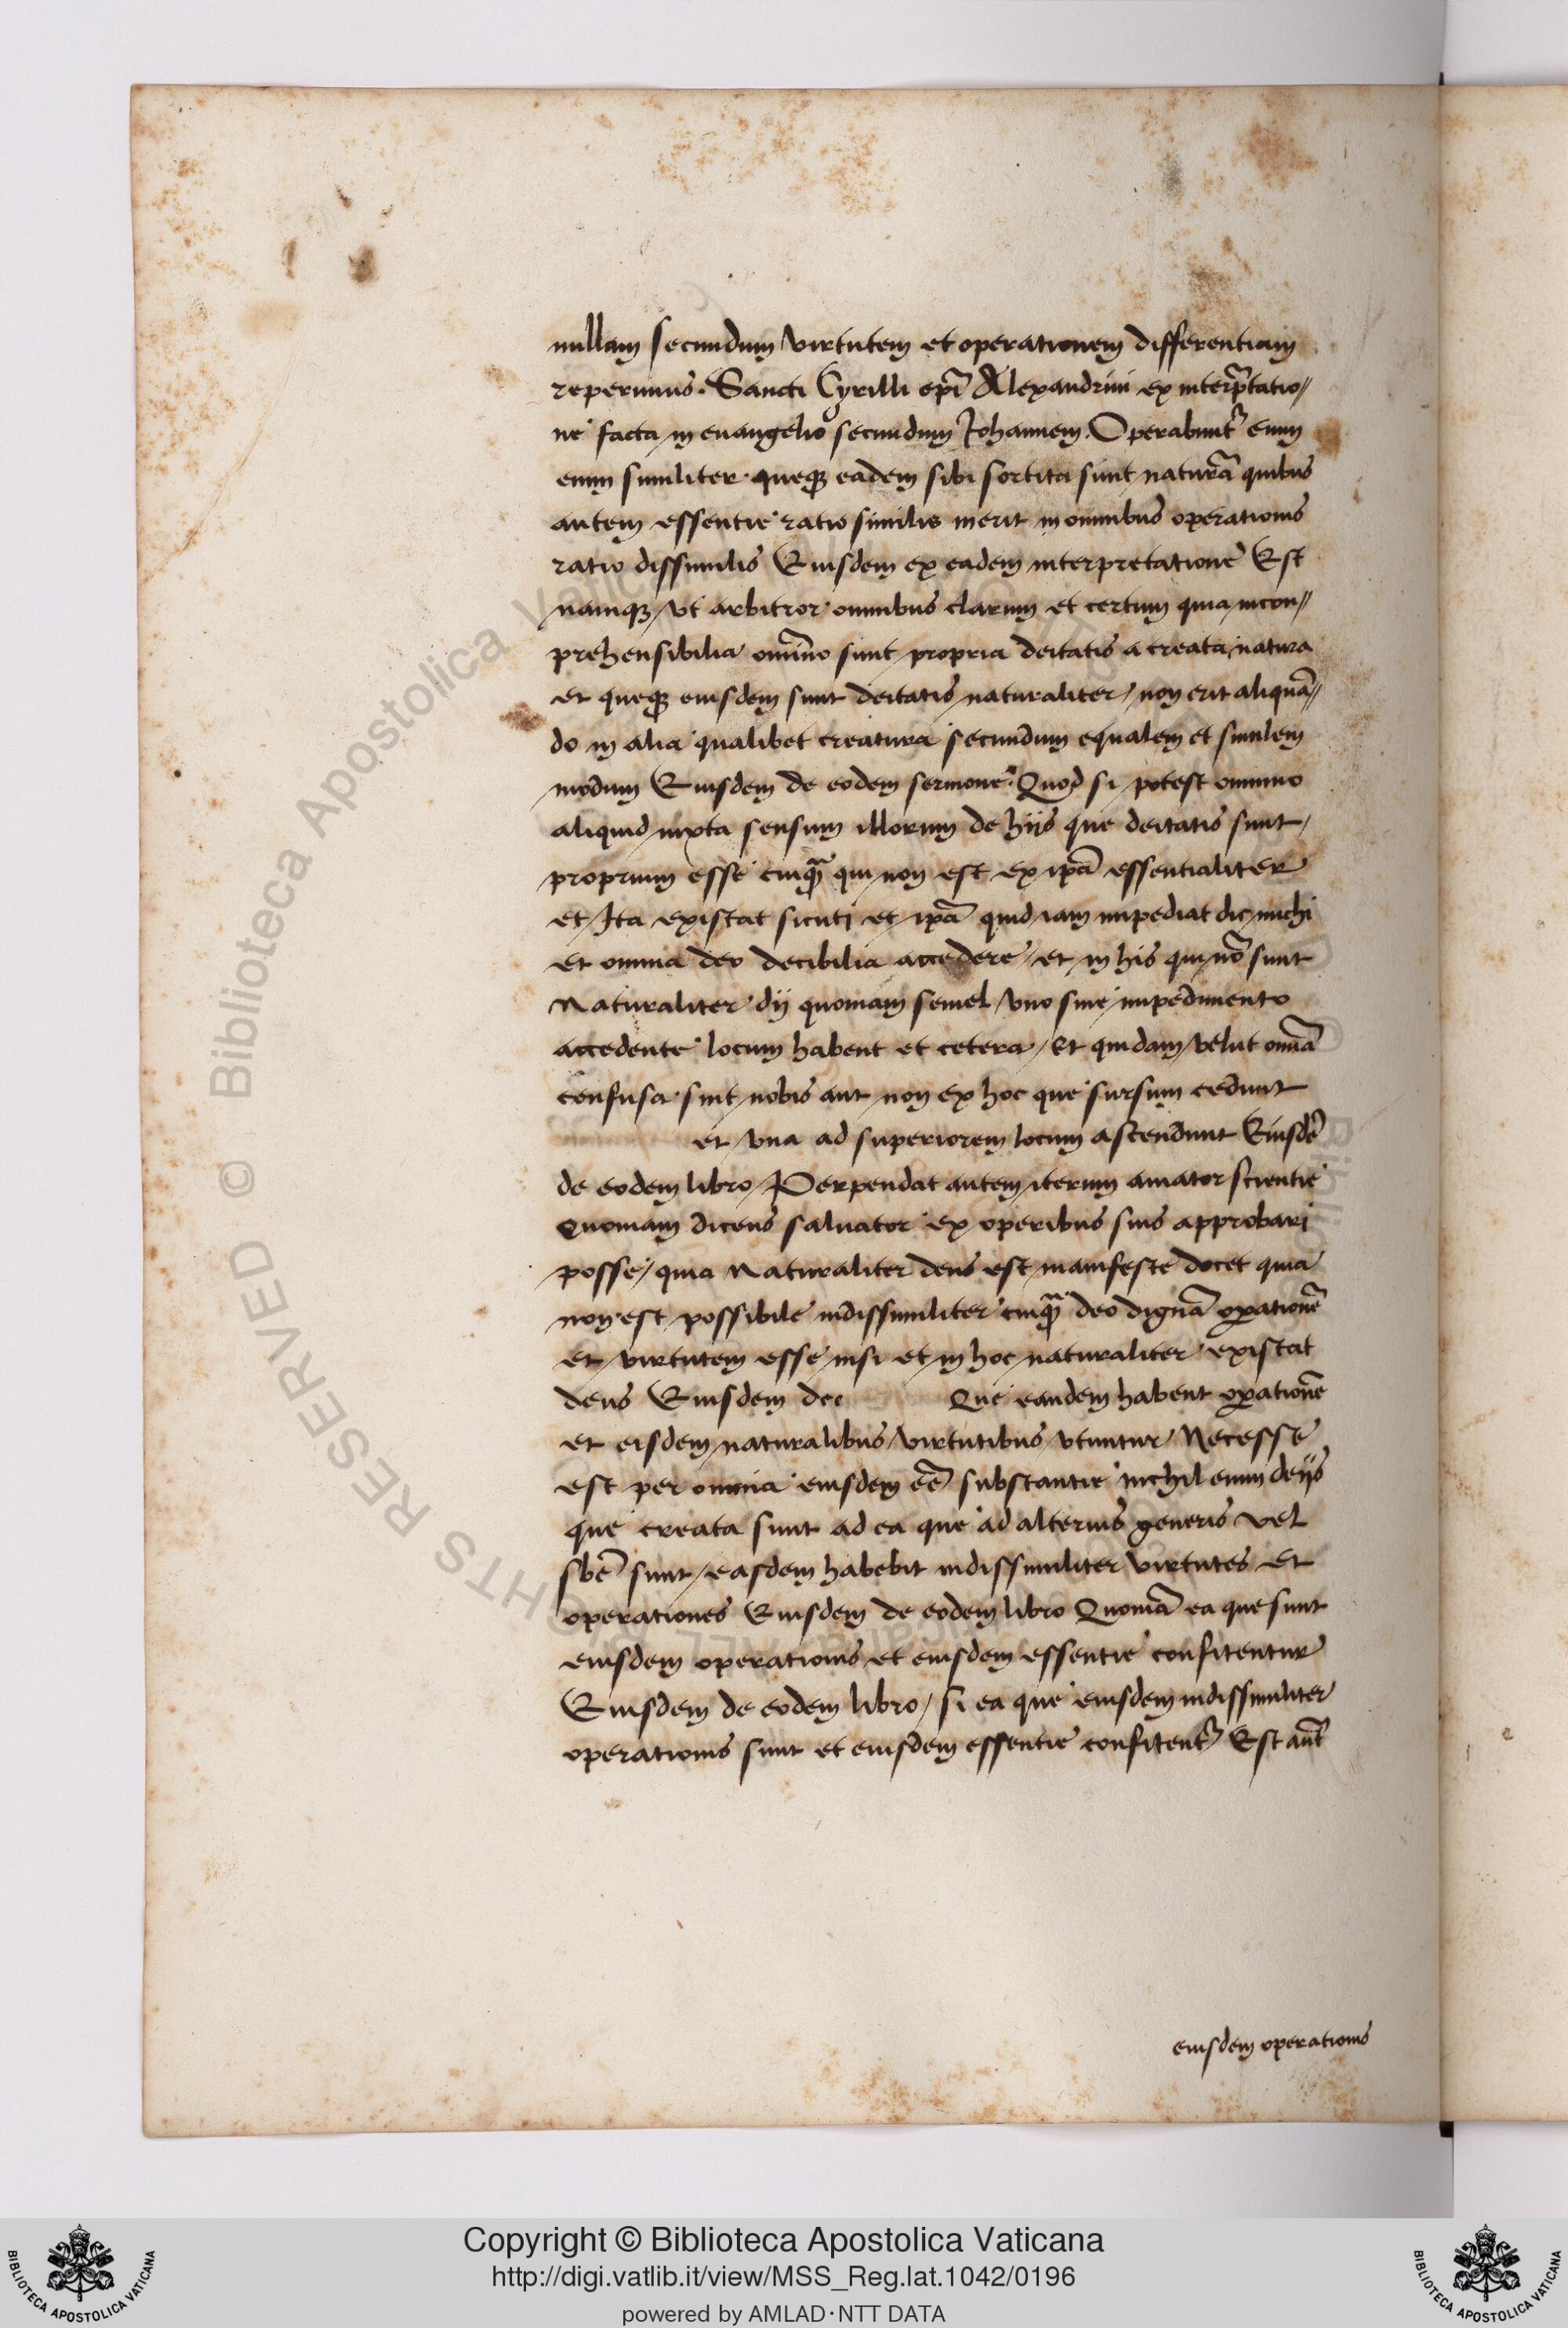 nullam secundum virtutem et operationem differentiam
reperimus. Sancti Cyrilli ep̄i Alexandrini ex interp̄tatio//
ne facta in euangelio secundum Johannem. Operabunt᷑ enim
enim similiter queqꝫ eadem sibi sortita sunt naturā quibus
autem essentie ratio similis inerit in omnibus operationis
ratio dissimilis Eiusdem ex eadem interpretatione Est
namqꝫ / vt arbitror omnibus clarum et certum quia incon//
prehensibilia om̄ino sunt propria deitatis a creata natura
et queqꝫ eiusdem sunt deitatis naturaliter / non erit aliquā//
do in alia qualibet creatura secundum equalem et similem
modum Eiusdem de eodem sermone. Quod si potest omnino
aliquid iuxta sensum illorum de hijs que deitatis sunt /
proprium esse cuiqꝫ qui non est ex ip̄a essentialiter
et Ita existat sicuti et ip̄a quid iam impediat dic michi
et omnia deo decibilia accedere / et in his qui nō sunt
Naturaliter dij quoniam semel vno sine impedimento
accedente locum habent et cetera / Et quidam velut om̄ia
confusa sint nobis aut non ex hoc que sursum cedunt
et vna ad superiorem locum ascendunt Eiusdē
de eodem libro / Perpendat autem iterum amator scientie
Quoniam dicens saluator ex operibus suis approbari
posse / quia Naturaliter deus est manifeste docet quia
non est possibile indissimiliter cuiqꝫ deo dignā oꝑationē
et virtutem esse nisi et in hoc naturaliter existat
deus Eiusdem dec Que eandem habent oꝑationē
et eisdem naturalibus virtutibus vtuntur Necesse
est per omnia eiusdem eē substantie nichil enim deijs
que creata sunt ad ea que ad alterius generis vel
sbē sunt / easdem habebit indissimiliter virtutes et
operationes Eiusdem de eodem libro Quoniā ea que sunt
eiusdem operationis et eiusdem essentie confitentur
Eiusdem de eodem libro / si ea que eiusdem indissimiliter
operationis sunt et eiusdem essentie confitent᷑ Est aut̄
eiusdem operationis
© Biblioteca Apostolica Vaticana
ALL RIGHTS RESERVED
Copyright © Biblioteca Apostolica Vaticana
http://digi.vatlib.it/view/MSS_Reg.lat.1042/0196
powered by AMLAD·NTT DATA
BIBLIOTECA APOSTOLICA VATICANA
BIBLIOTECA APOSTOLICA VATICANA